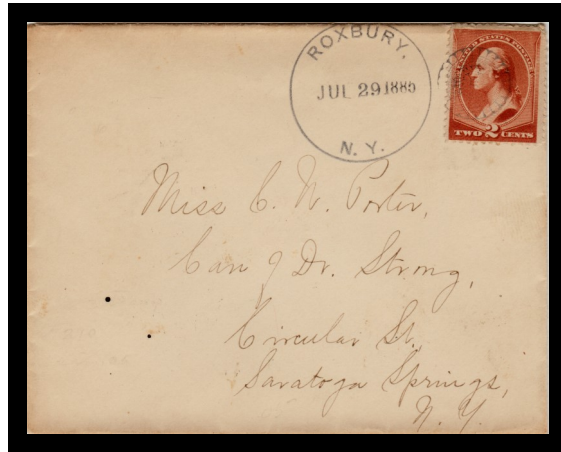 ROXBURY.
JUL 29 1885
N. Y.
UNITED STATES POSTAGE
TWO 2 CENTS
Miss C. N. Porter,
Care of Dr. Strong,
Circular St.,
Saratoga Springs,
N. Y.